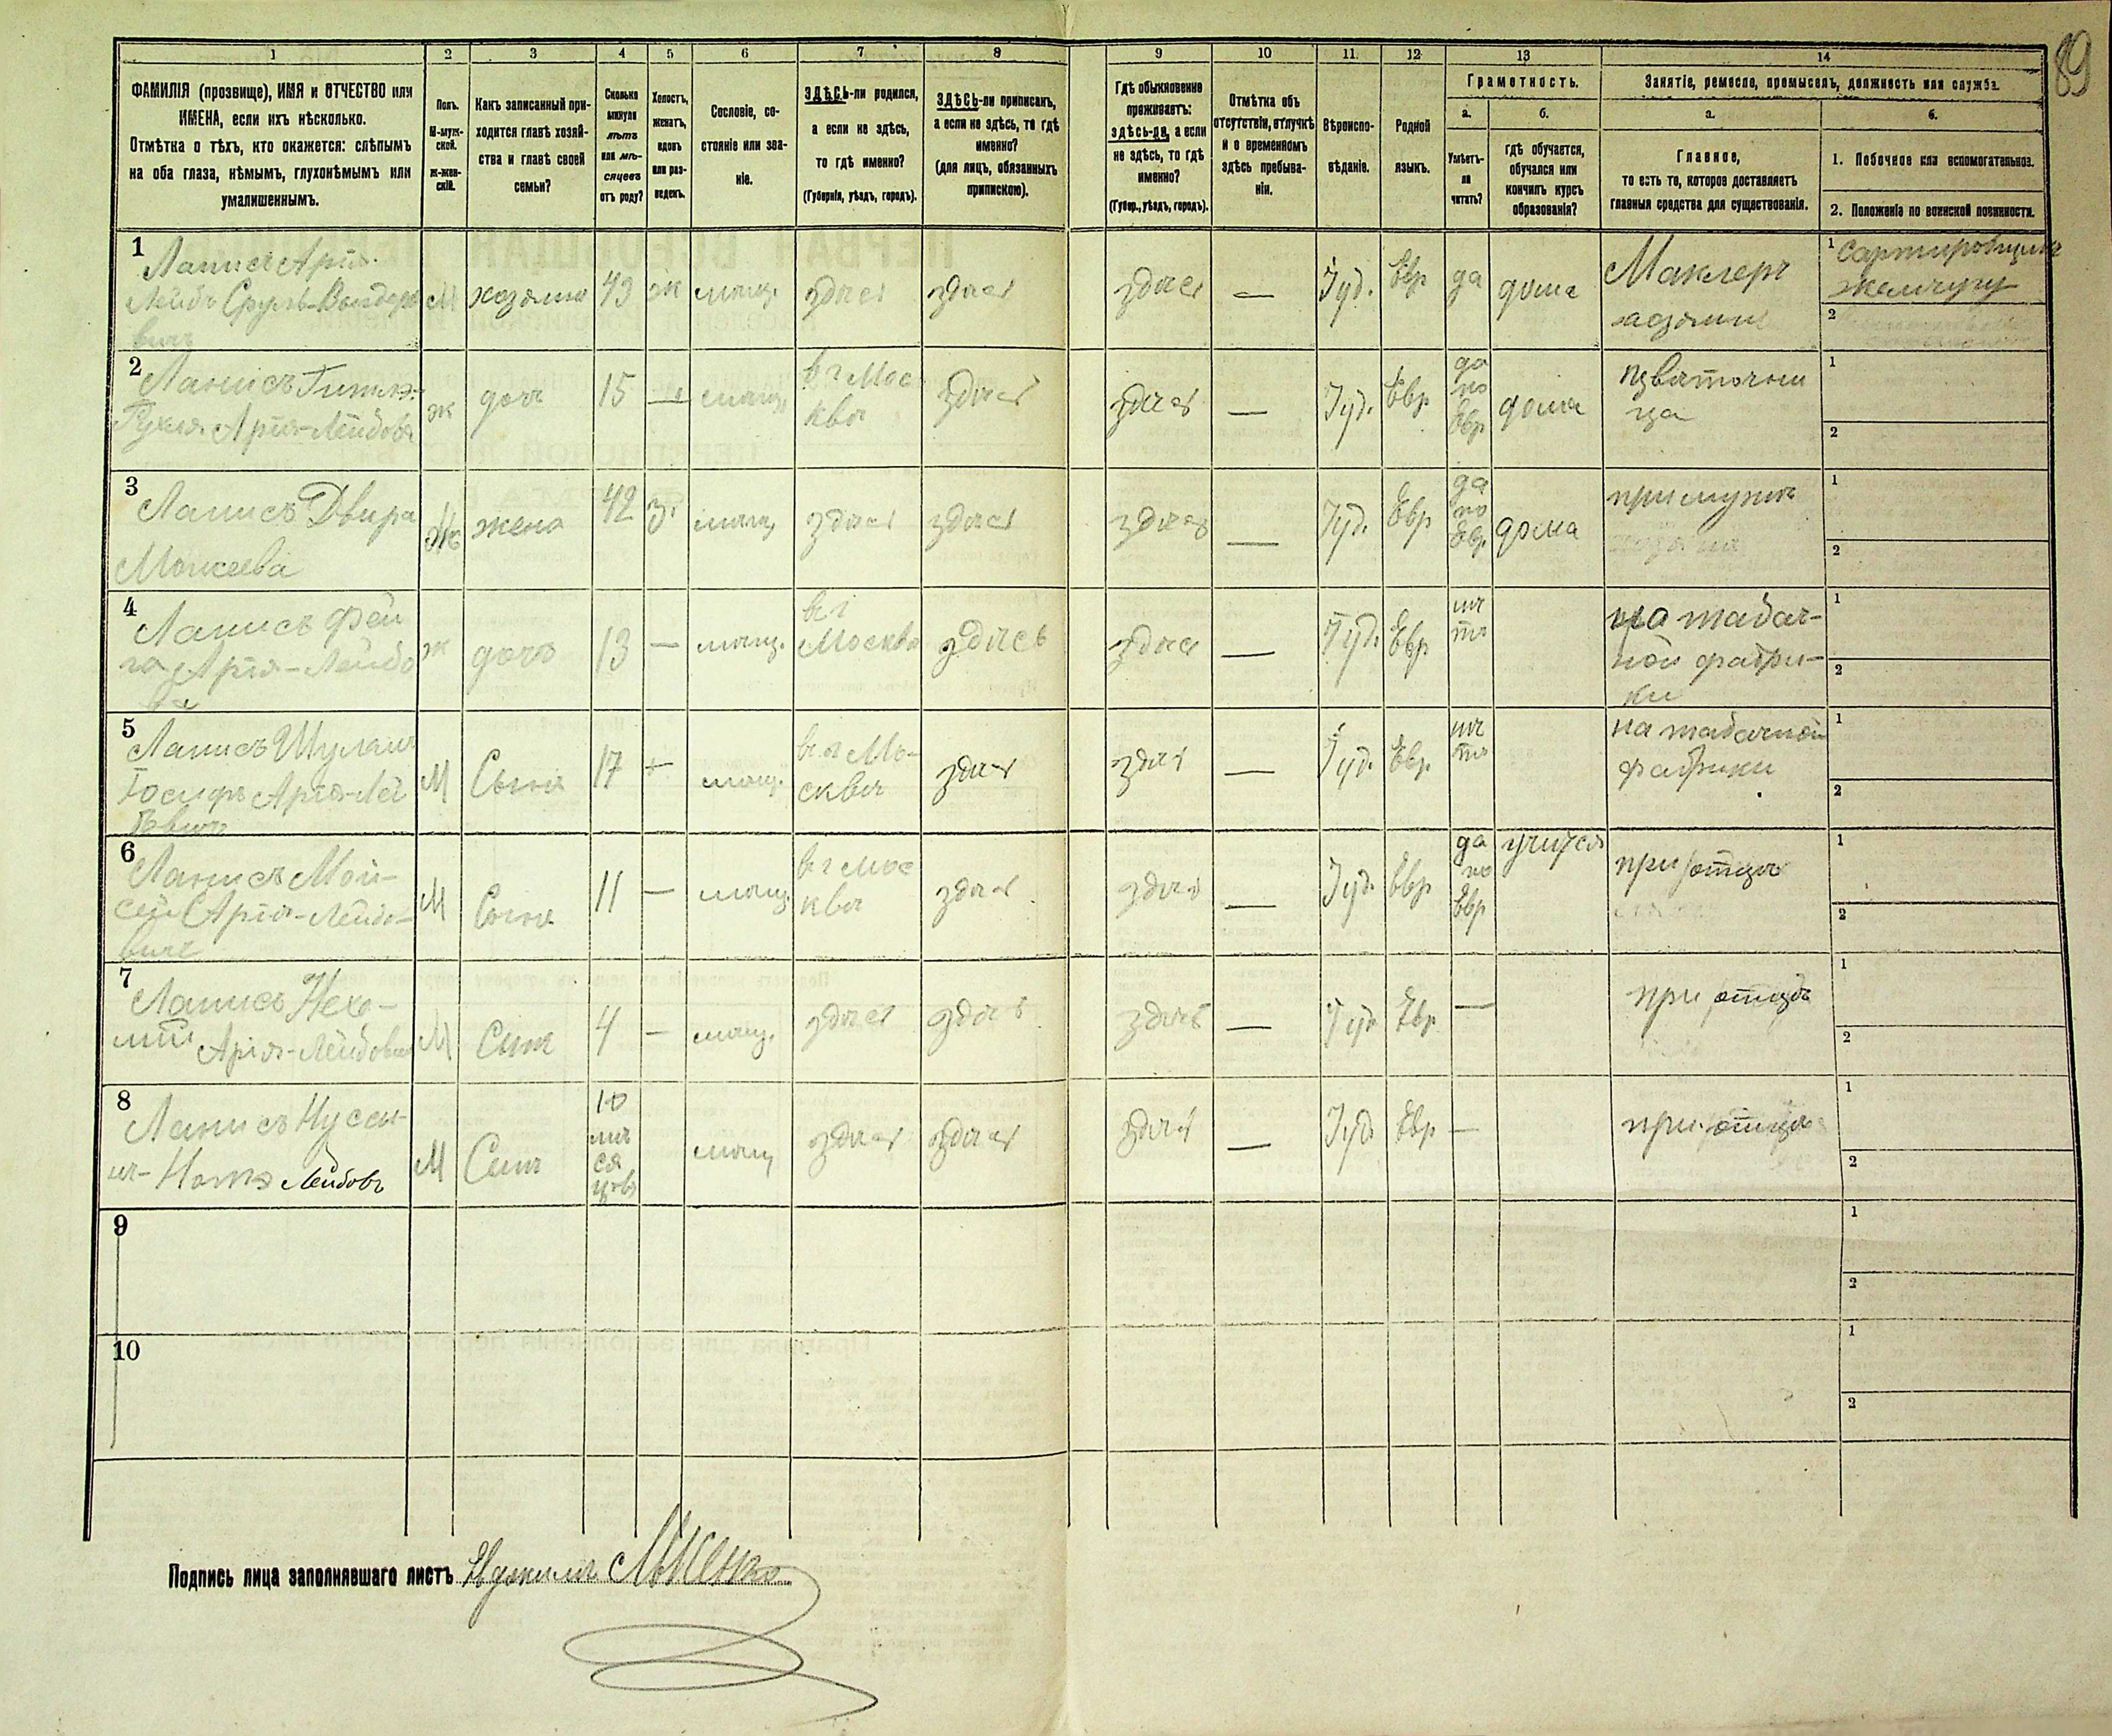 89
1 2 3 4 5 6 7 8 9 10 11. 12 13 14
ФАМИЛІЯ (прозвище), ИМЯ и ОТЧЕСТВО или
ИМЕНА, если ихъ нѣсколько.
Отмѣтка о тѣхъ, кто окажется: слѣпымъ
на оба глаза, нѣмымъ, глухонѣмымъ или
умалишеннымъ.
Полъ.
М-муж-
ской.
ж-жен-
скій.
Какъ записанный при-
ходится главѣ хозяй-
ства и главѣ своей
семьи?
Сколько
минуло
лѣтъ
или мѣ-
сяцевъ
отъ роду?
Холостъ,
женатъ,
вдовъ
или раз-
веденъ.
Сословіе, со-
стояніе или зва-
ніе.
ЗДѢСЬ-ли родился,
а если не здѣсь,
то гдѣ именно?
(Губернія, уѣздъ, городъ).
ЗДѢСЬ-ли приписанъ,
а если не здѣсь, то гдѣ
именно?
(для лицъ, обязанныхъ
припискою).
Гдѣ обыкновенно
проживаетъ:
здѣсь-ли, а если
не здѣсь, то гдѣ
именно?
(Губер., уѣздъ, городъ).
Отмѣтка объ
отсутствіи, отлучкѣ
и о временномъ
здѣсь пребыва-
ніи.
Вѣроиспо-
вѣданіе.
Родной
языкъ.
Грамотность.
а.
Умѣетъ-
ли
читать?
б.
гдѣ обучается,
обучался или
кончилъ курсъ
образованія?
Занятіе, ремесло, промыселъ, должность или служба.
а.
Главное,
то есть то, которое доставляетъ
главныя средства для существованія.
б.
1. Побочное или вспомогательное.
2. Положеніе по воинской повинности.
1
Ланисъ Арія
М хозяинъ 43 ж мѣщ. здѣсь здѣсь здѣсь — Іуд. Евр да дома Маклеръ
1 жемчугу
2
2
Ланисъ
Арія-Лейбова
ж дочь 15 — мѣщ. в г Мос
квы здѣсь здѣсь — Іуд. Евр да
по
Евр дома цвѣточни
ца
1
2
3
Ланисъ Двира
Мошкева
Ж жена 42 з. мѣщ здѣсь здѣсь здѣсь — Іуд. Евр да
по
Евр. дома при мужѣ
1
2
4
Ланисъ Фей
га Арія-Лейбо
ва
ж дочь 13 — мѣщ. в г
Москва здѣсь здѣсь — Іуд. Евр нѣ
тъ на табач-
ной фабри-
ки
1
2
5
Ланисъ
Іосифъ Арія-Лей
М Сынъ 17 — мѣщ. в г Мо-
сквы здѣсь здѣсь — Іуд. Евр. нѣ
тъ на табачной
фабрики
1
2
6
Ланисъ Мой-
сей Арія-Лейбо-
вичъ
М Сынъ 11 — мѣщ. в г Мос
квы здѣсь здѣсь — Іуд. Евр да
по
Евр учится при отцѣ
1
2
7
Ланисъ Нехе-
мій Арія-Лейбович
М Сынъ 4 — мѣщ. здѣсь здѣсь здѣсь — Іуд. Евр — при отцѣ
1
2
8
Ланисъ Нусен-
Лейбовъ
М Сынъ 10
мѣ
ся
цовъ мѣщ здѣсь здѣсь здѣсь — Іуд. Евр — при отцѣ
1
2
9
1
2
10
1
2
Подпись лица заполнявшаго листъ